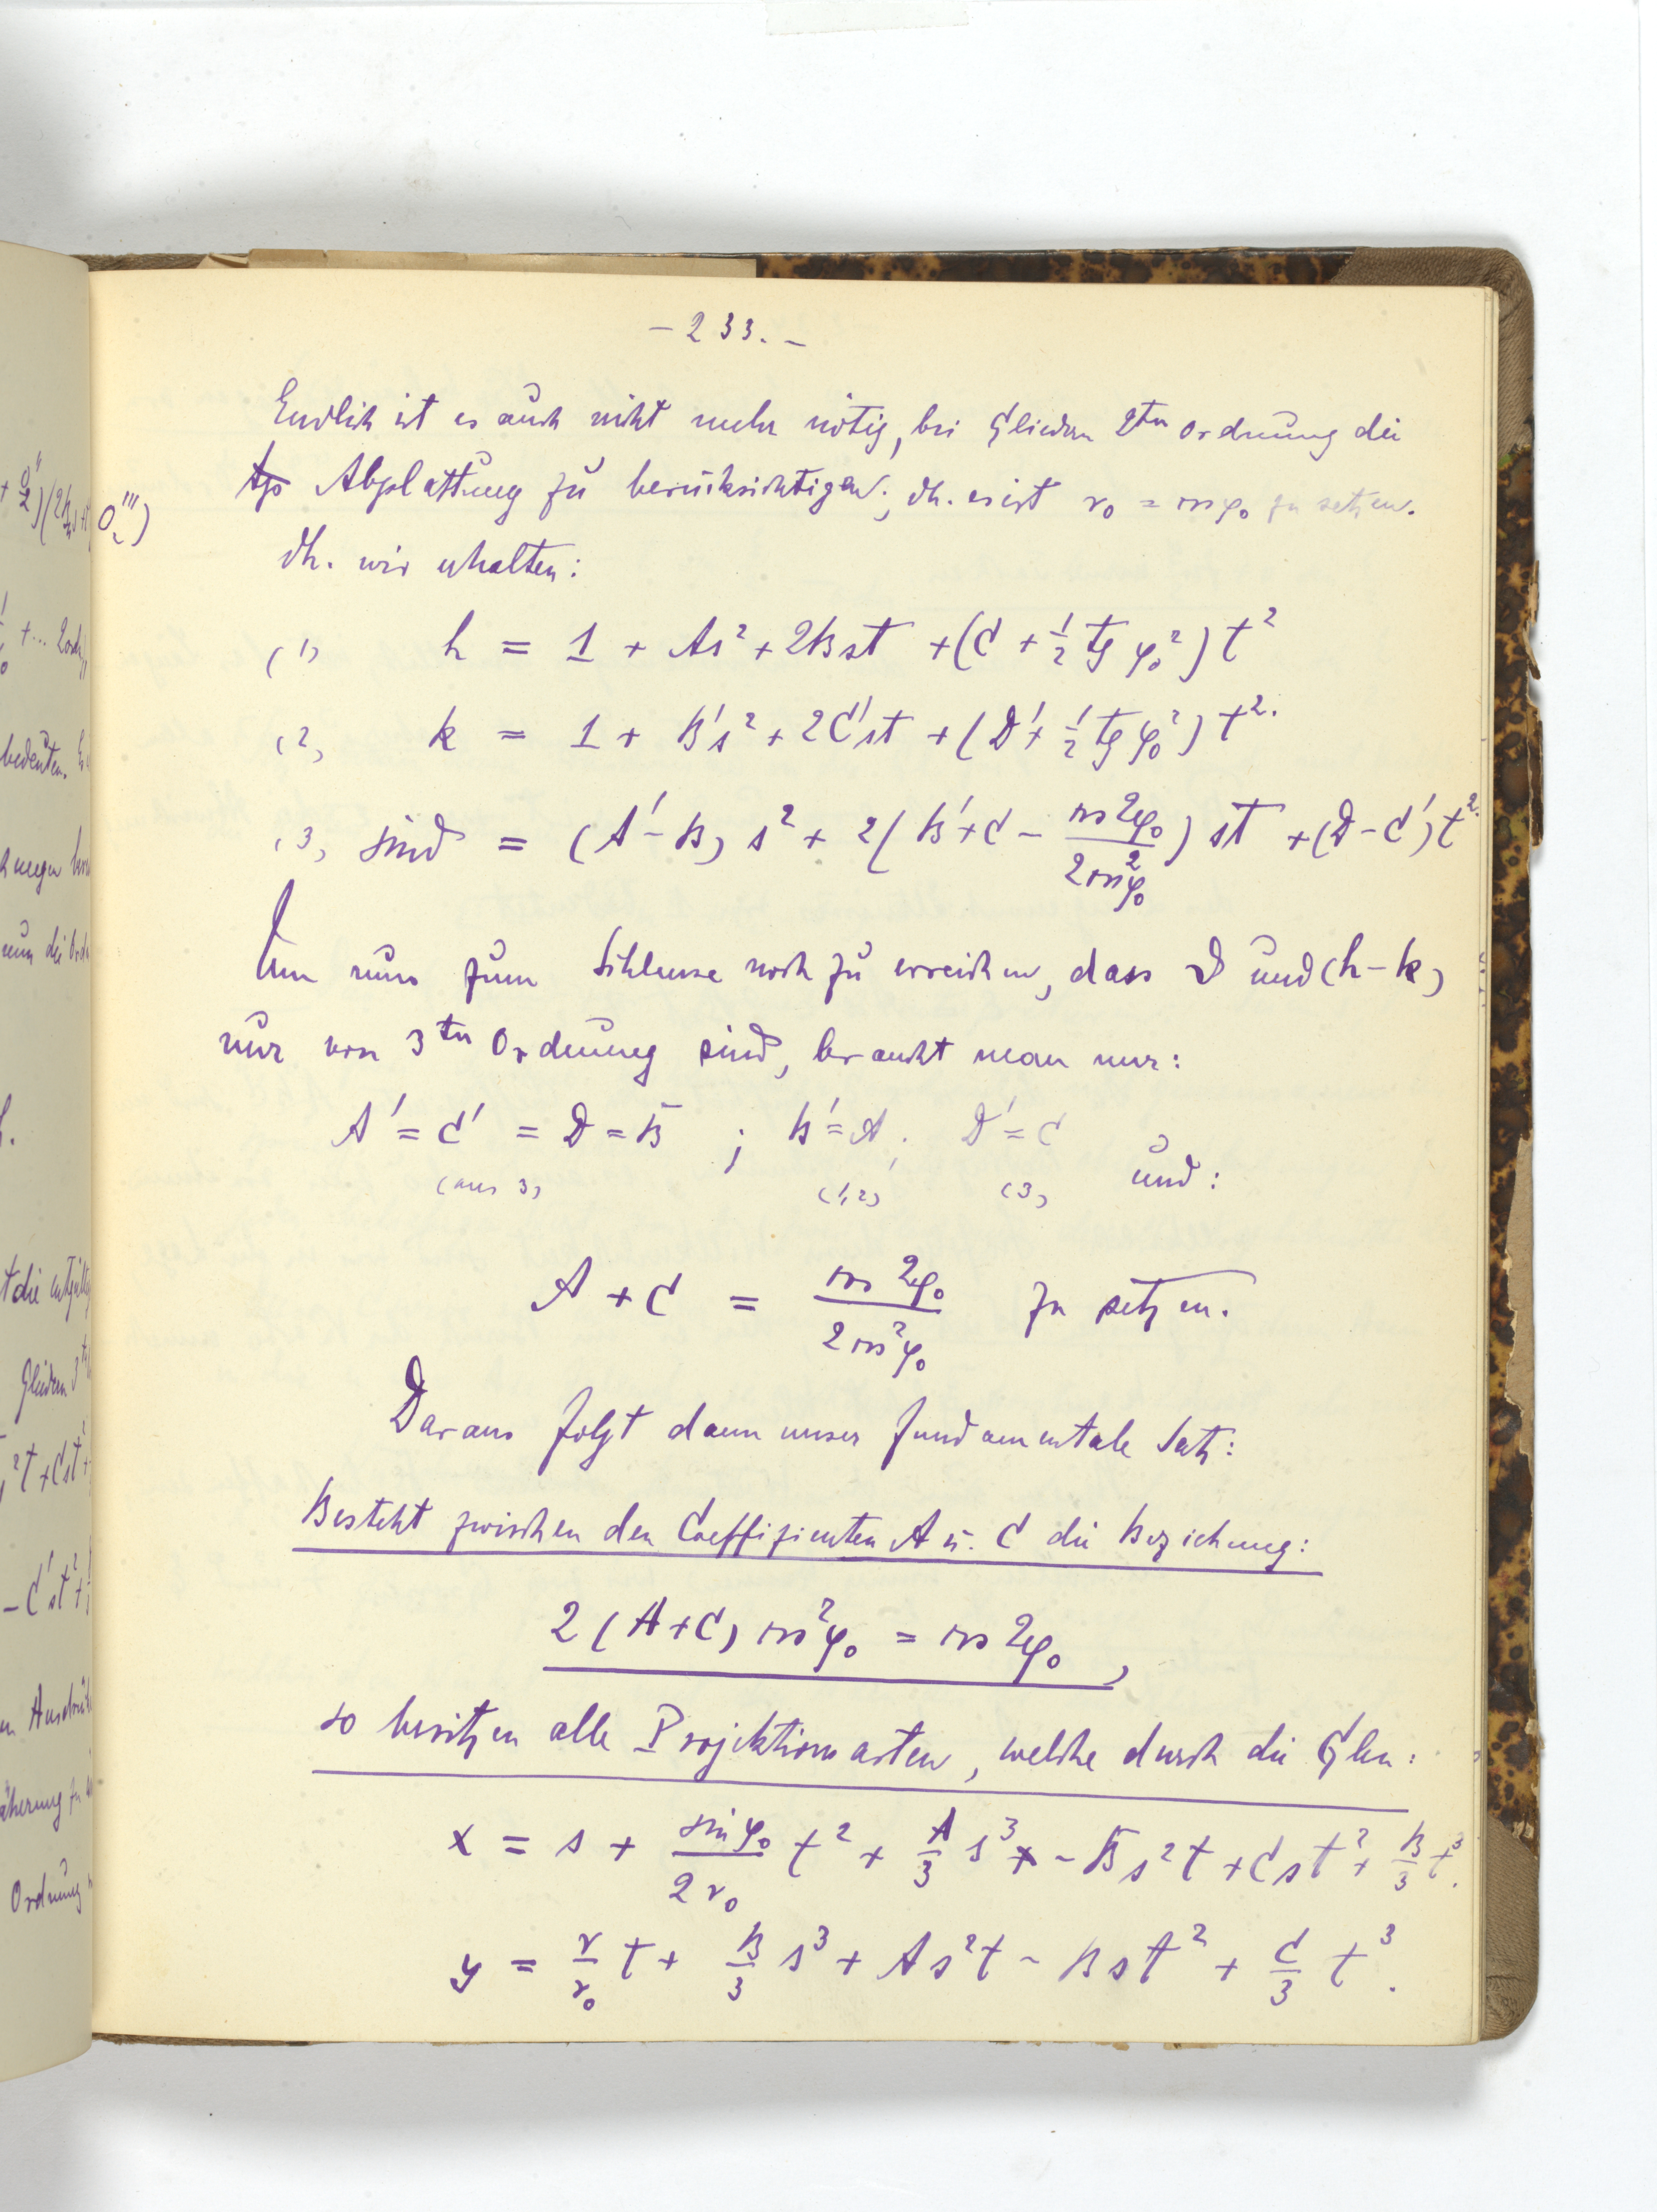 - 233. -
Endlich ist es auch nicht mehr nötig, bei Gliedern 2ten Ordnung die
Abplattung zu berücksichtigen; dh. es ist r₀ = cos φ₀ zu setzen.
dh. wir erhalten:
(1) h = 1 + As² + 2Bst + (C + 1/2 tg φ₀²) t²
(2) k = 1 + B's² + 2C'st + (D' + 1/2 tg φ₀²) t².
(3) sin δ = (A' - B) s² + 2(B' + C - cos 2φ₀ / 2cos²φ₀) st + (D - C') t².
Um nun zum Schlusse noch zu erreichen, dass δ und (h - k)
nur von 3ten Ordnung sind, braucht man nur:
A' = C' = D = B ; B' = A ; D' = C
(aus 3) (1,2) (3) und:
A + C = cos 2φ₀ / 2cos²φ₀ zu setzen.
Daraus folgt dann unser fundamentale Satz:
Besteht zwischen den Coeffizienten A u. C die Beziehung:
2(A+C) cos²φ₀ = cos 2φ₀,
so besitzen alle Projektionsarten, welche durch die Glen:
x = s + sin φ₀ / 2r₀ t² + A/3 s³ - Bs²t + Cst² + B/3 t³.
y = r/r₀ t + B/3 s³ + As²t - Bst² + C/3 t³.